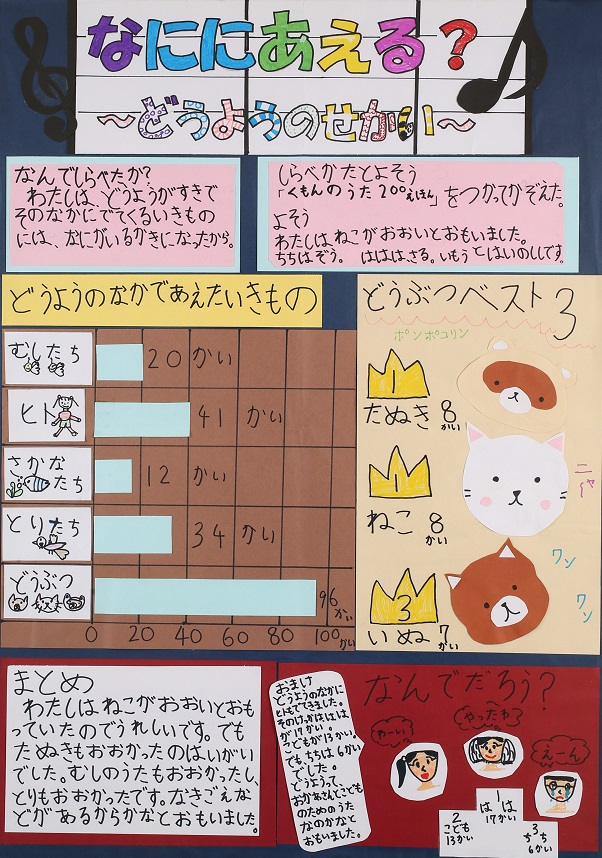 なににあえる?
〜どうようのせかい〜
なんでしらべたか?
わたしは、どうようがすきで
そのなかにでてくるいきもの
には、なにがいるかきになったから。
しらべかたとよそう
「くもんのうた200えほん」をつかってかぞえた。
よそう
わたしはねこがおおいとおもいました。
ちちはぞう。ははは、さる。いもうとはいのししです。
どうようのなかであえたいきもの
むしたち 20かい
ヒト 41かい
さかなたち 12かい
とりたち 34かい
どうぶつ 96かい
0 20 40 60 80 100かい
どうぶつベスト3
ポンポコリン
1
たぬき 8かい
1
ねこ 8かい
ニャ〜
3
いぬ 7かい
ワン
ワン
まとめ
わたしはねこがおおいとおも
っていたのでうれしいです。でも
たぬきもおおかったのはいがい
でした。むしのうたもおおかったし、
とりもおおかったです。なきごえな
どがあるからかなとおもいました。
おまけ
どうようのなかに
ヒトもでてきました。
そのけっかはははは
が17かい。
こどもが13かい。
でも、ちちは6かい
でした。
どうようって、
おかあさんとこども
のためのうた
なのかなと
おもいました。
なんでだろう?
わーい!
やったね?
えーん
1
はは
17かい
2
こども
13かい
3
ちち
6かい